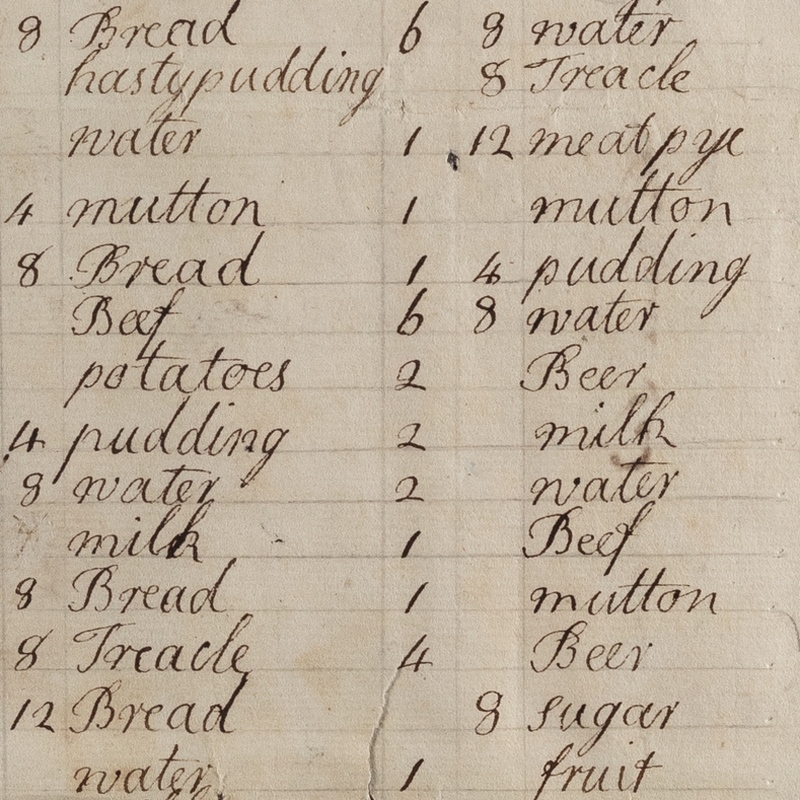 8 Bread 6 8 water
hastypudding 8 Treacle
water 1 12 meat pye
4 mutton 1 mutton
8 Bread 1 4 pudding
Beef 6 8 water
potatoes 2 Beer
4 pudding 2 milk
8 water 2 water
milk 1 Beef
8 Bread 1 mutton
8 Treacle 4 Beer
12 Bread 8 sugar
water 1 fruit